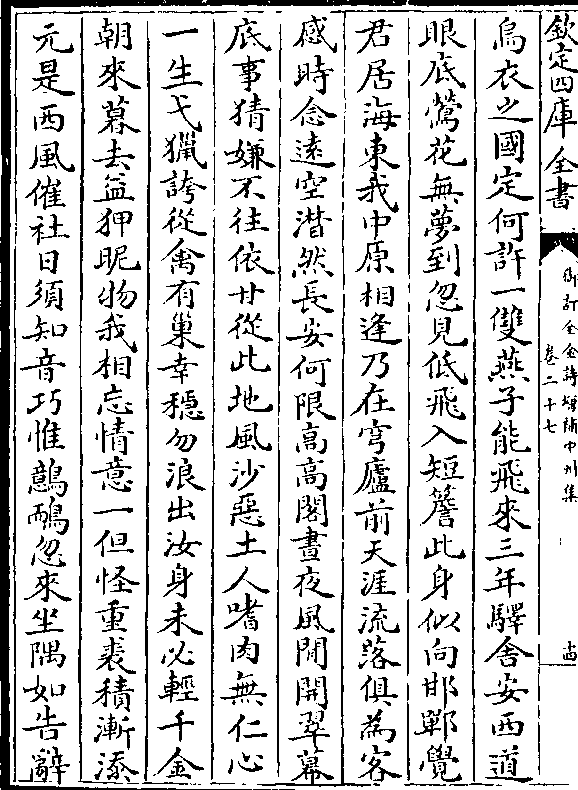 欽定四庫全書
御訂全金詩增補中州集
卷二十七
烏衣之國定何許一雙燕子能飛來三年驛舍安西道
眼底鶯花無夢到忽見低飛入短簷此身似向邯鄲覺
君居海東我中原相逢乃在穹廬前天涯流落俱為客
感時念遠空潸然長安何限高高閣晝夜風閒開翠幕
底事猜嫌不往依甘從此地風沙惡土人嗜肉無仁心
一生弋獵誇從禽有巢幸穩勿浪出汝身未必輕千金
朝來暮去益狎昵物我相忘情意一但怪重裘積漸添
元是西風催社日須知音巧惟鷾鴯忽來坐隅如告辭